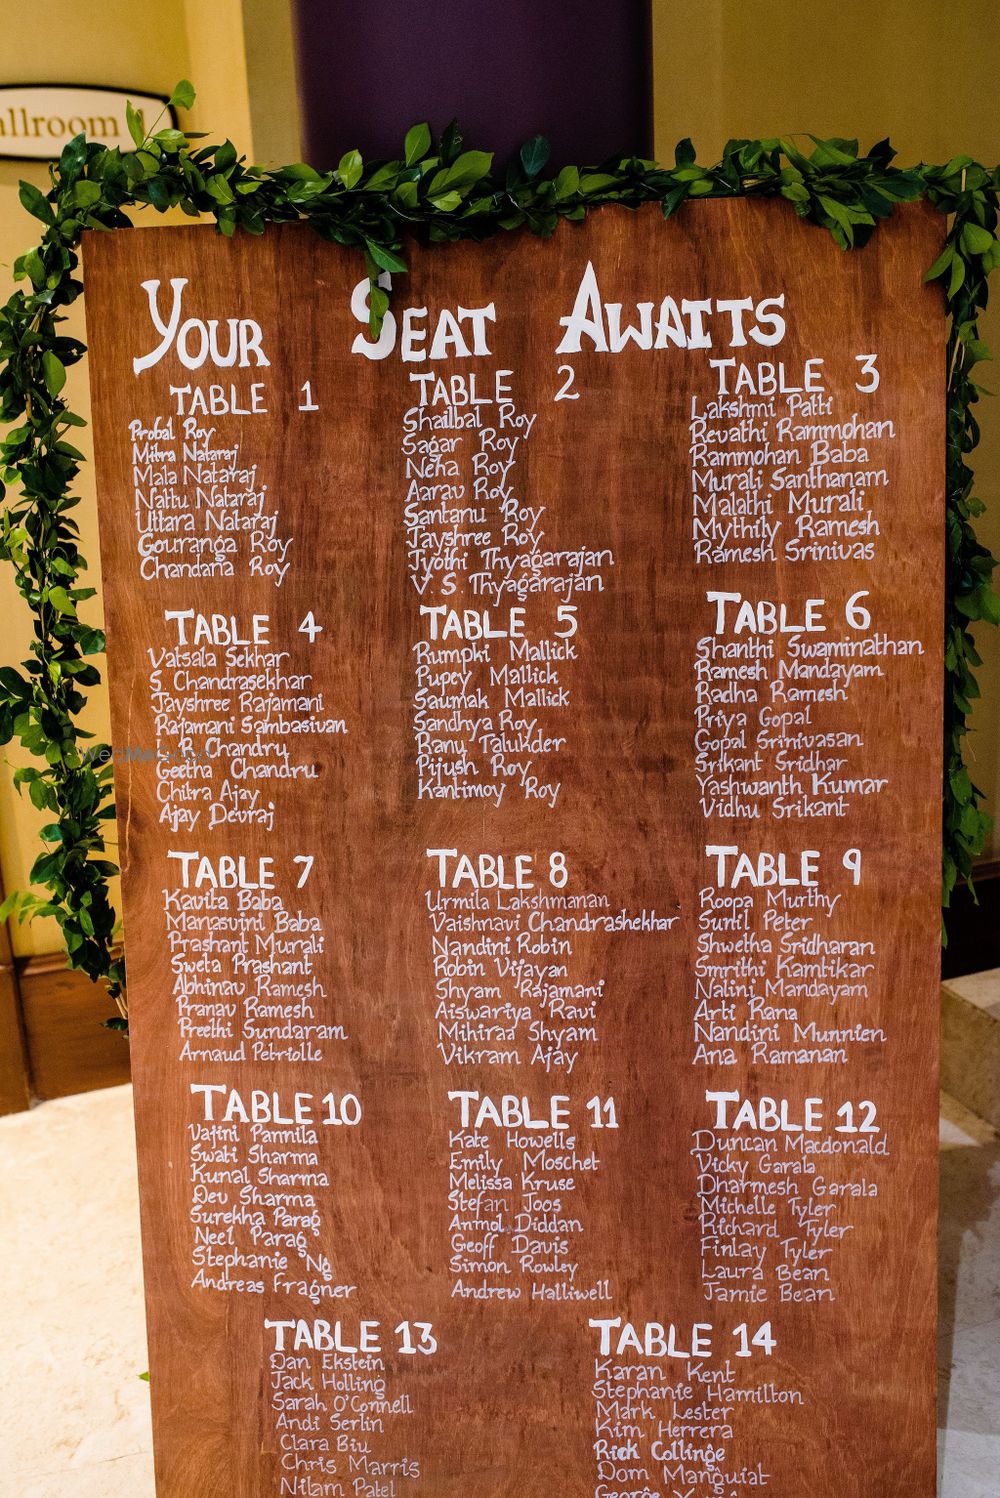 allroom 1
YOUR SEAT AWAITS
TABLE 1
Probal Roy
Mitra Nataraj
Mala Nataraj
Nattu Nataraj
Uttara Nataraj
Gouranga Roy
Chandana Roy
TABLE 2
Shailbal Roy
Sagar Roy
Neha Roy
Aarav Roy
Santanu Roy
Jayshree Roy
Jyothi Thyagarajan
V. S. Thyagarajan
TABLE 3
Lakshmi Patti
Revathi Rammohan
Rammohan Baba
Murali Santhanam
Malathi Murali
Mythily Ramesh
Ramesh Srinivas
TABLE 4
Vatsala Sekhar
S Chandrasekhar
Jayshree Rajamani
Rajamani Sambasivan
R Chandru
Geetha Chandru
Chitra Ajay
Ajay Devraj
TABLE 5
Rumpki Mallick
Pupey Mallick
Saumak Mallick
Sandhya Roy
Ranu Talukder
Pijush Roy
Kantimoy Roy
TABLE 6
Shanthi Swaminathan
Ramesh Mandayam
Radha Ramesh
Priya Gopal
Gopal Srinivasan
Srikant Sridhar
Yashwanth Kumar
Vidhu Srikant
TABLE 7
Kavita Baba
Manasvini Baba
Prashant Murali
Sweta Prashant
Abhinav Ramesh
Pranav Ramesh
Preethi Sundaram
Arnaud Petriolle
TABLE 8
Urmila Lakshmanan
Vaishnavi Chandrashekhar
Nandini Robin
Robin Vijayan
Shyam Rajamani
Aiswariya Ravi
Mihiraa Shyam
Vikram Ajay
TABLE 9
Roopa Murthy
Sunil Peter
Shwetha Sridharan
Smrithi Kamtikar
Nalini Mandayam
Arti Rana
Nandini Munnien
Ana Ramanan
TABLE 10
Vajini Pannila
Swati Sharma
Kunal Sharma
Dev Sharma
Surekha Parag
Neel Parag
Stephanie Ng
Andreas Fragner
TABLE 11
Kate Howells
Emily Moschet
Melissa Kruse
Stefan Joos
Anmol Diddan
Geoff Davis
Simon Rowley
Andrew Halliwell
TABLE 12
Duncan Macdonald
Vicky Garala
Dharmesh Garala
Michelle Tyler
Richard Tyler
Finlay Tyler
Laura Bean
Jamie Bean
TABLE 13
Dan Ekstein
Jack Holling
Sarah O'Connell
Andi Serlin
Clara Biu
Chris Marris
Nilam Patel
TABLE 14
Karan Kent
Stephanie Hamilton
Mark Lester
Kim Herrera
Rick Collinge
Dom Manguiat
George